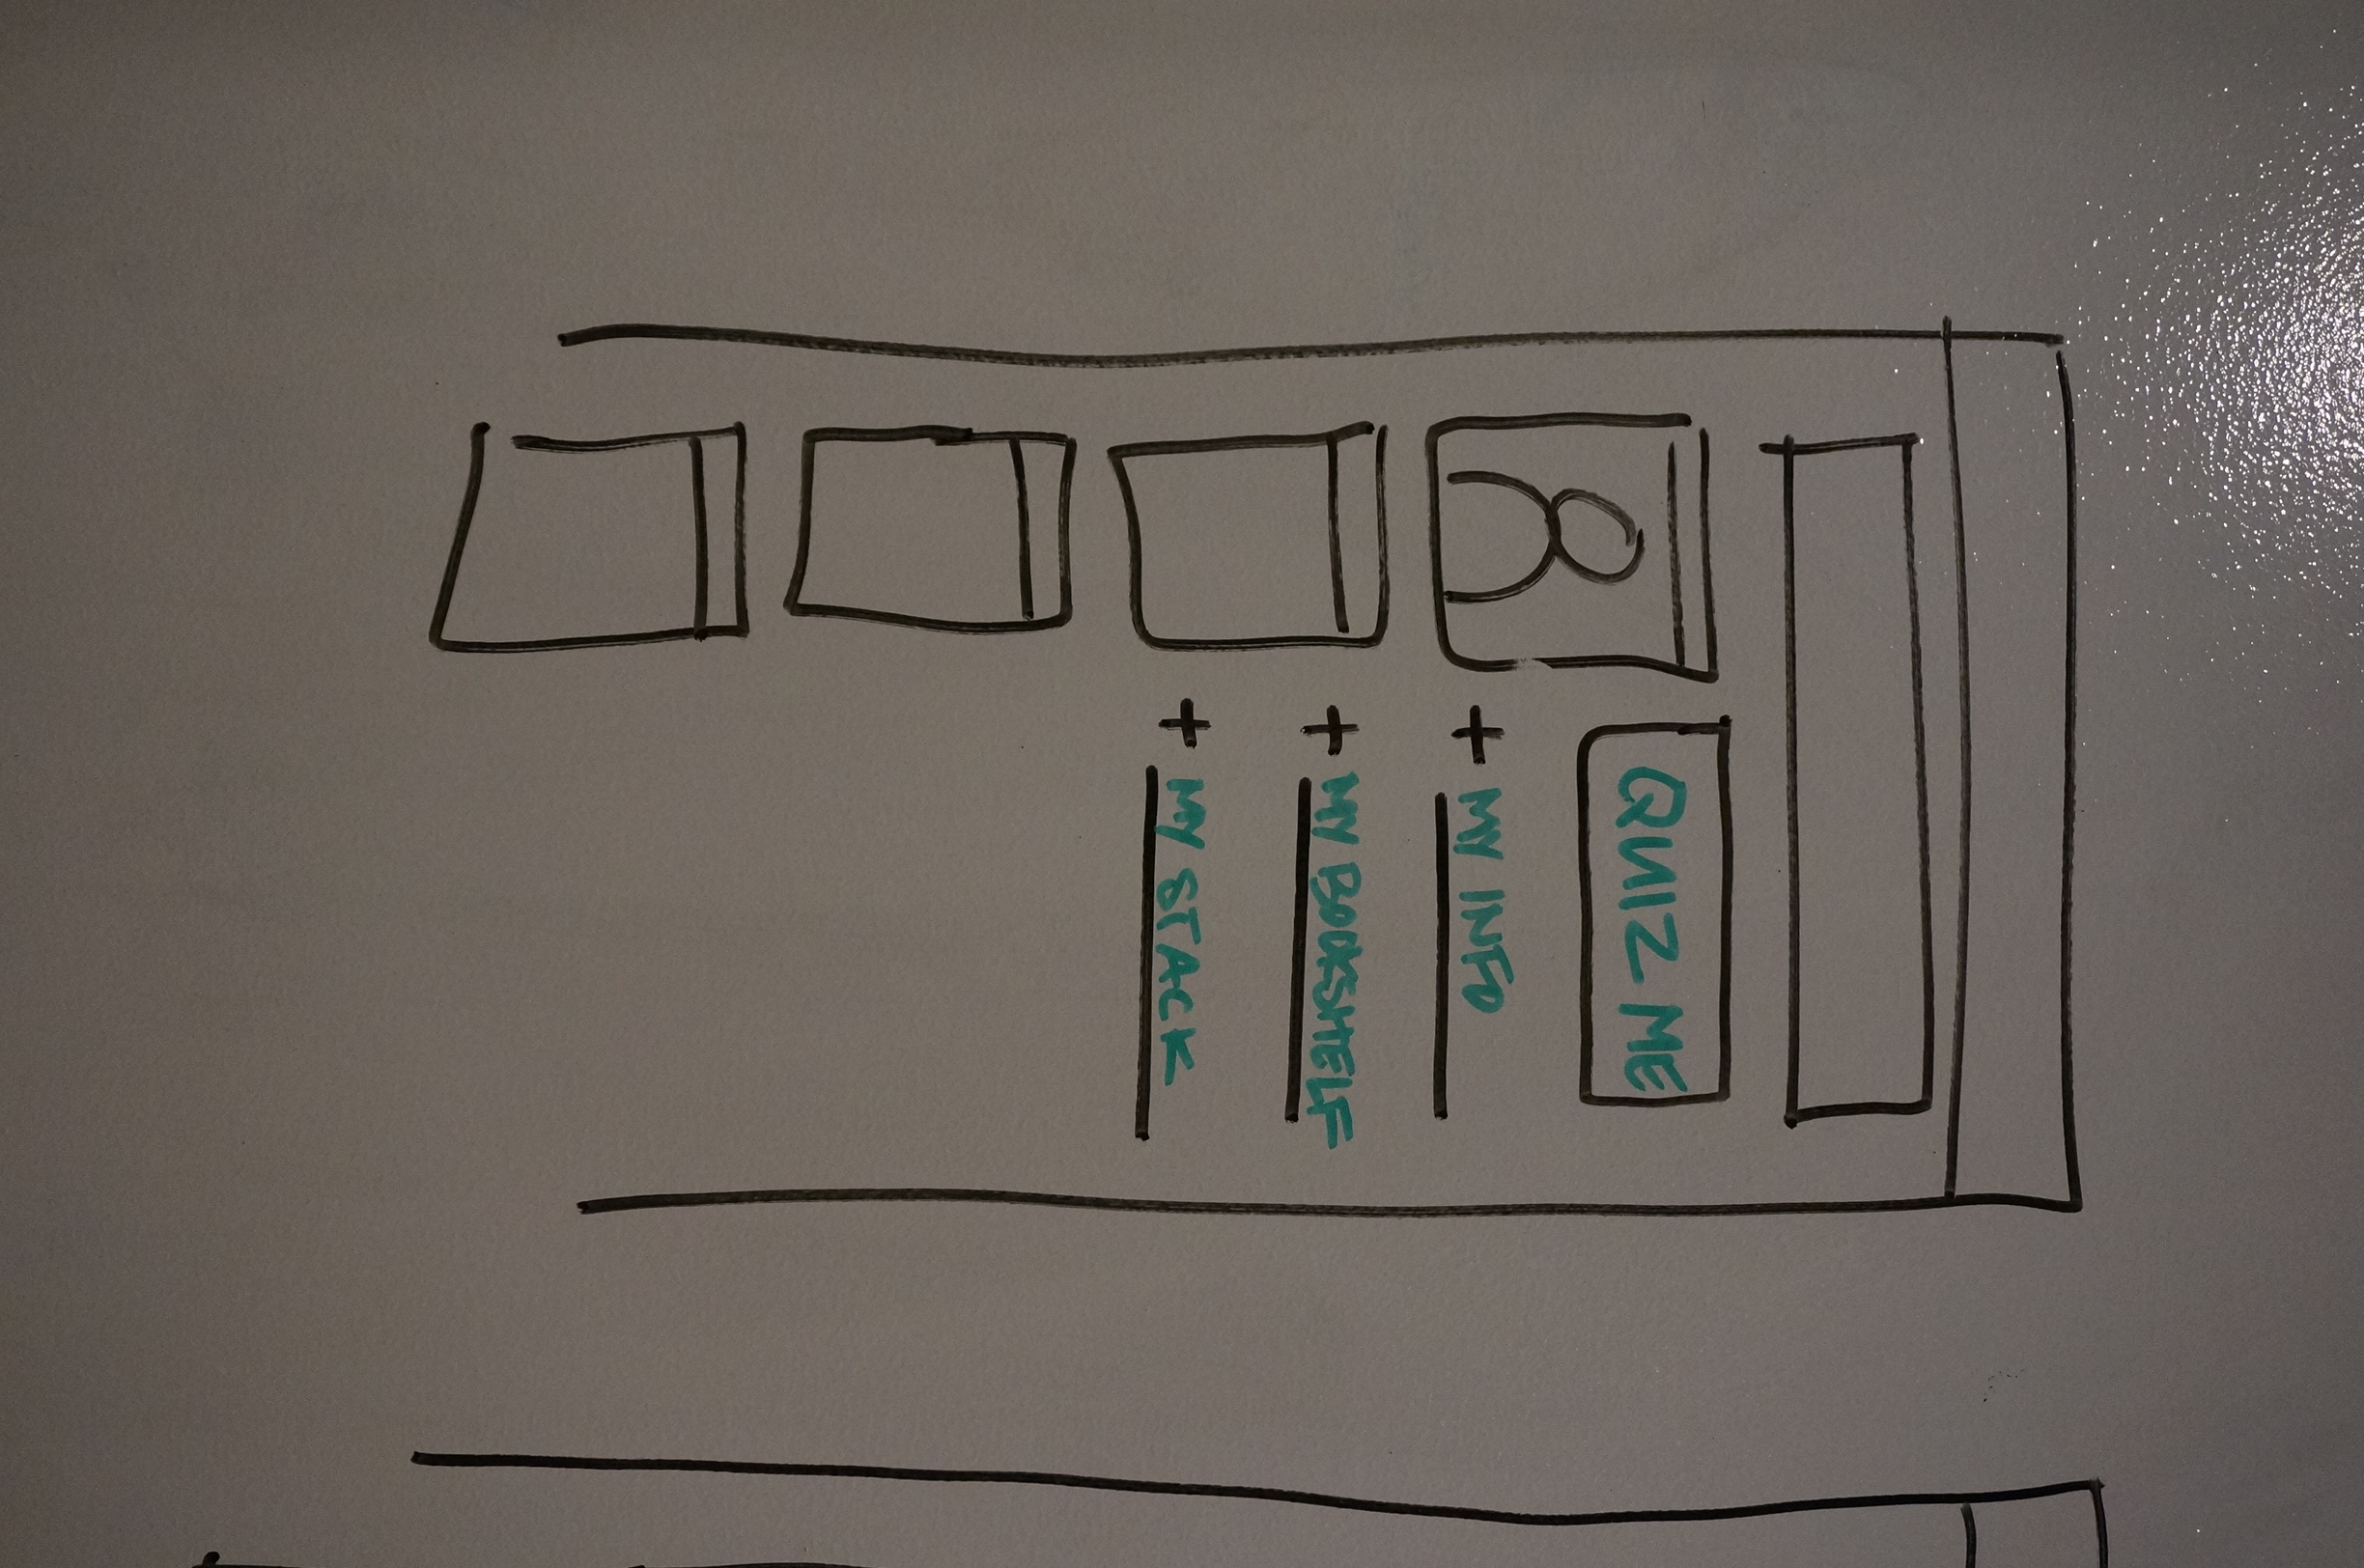 QUIZ ME
+ MY INFO
+ MY BOOKSHELF
+ MY STACK